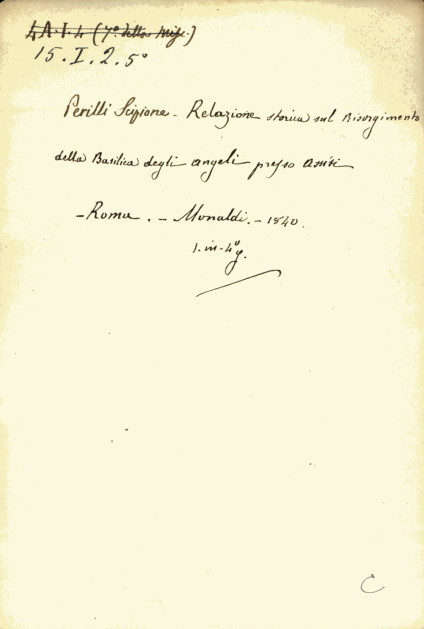 4A.I.4 (7° della Misc.)
15.I.2.5°
Perilli Scipione - Relazione storica sul Risorgimento
della Basilica degli angeli presso Assisi
- Roma. - Monaldi. - 1840.
1. in-4° g.
C